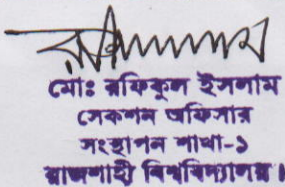 মোঃ রফিকুল ইসলাম
সেকশন অফিসার
সংস্থাপন শাখা-১
রাজশাহী বিশ্ববিদ্যালয়।